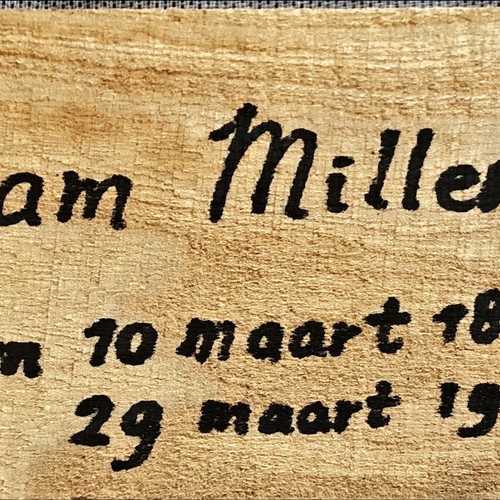 am Miller
m 10 maart 18
29 maart 19